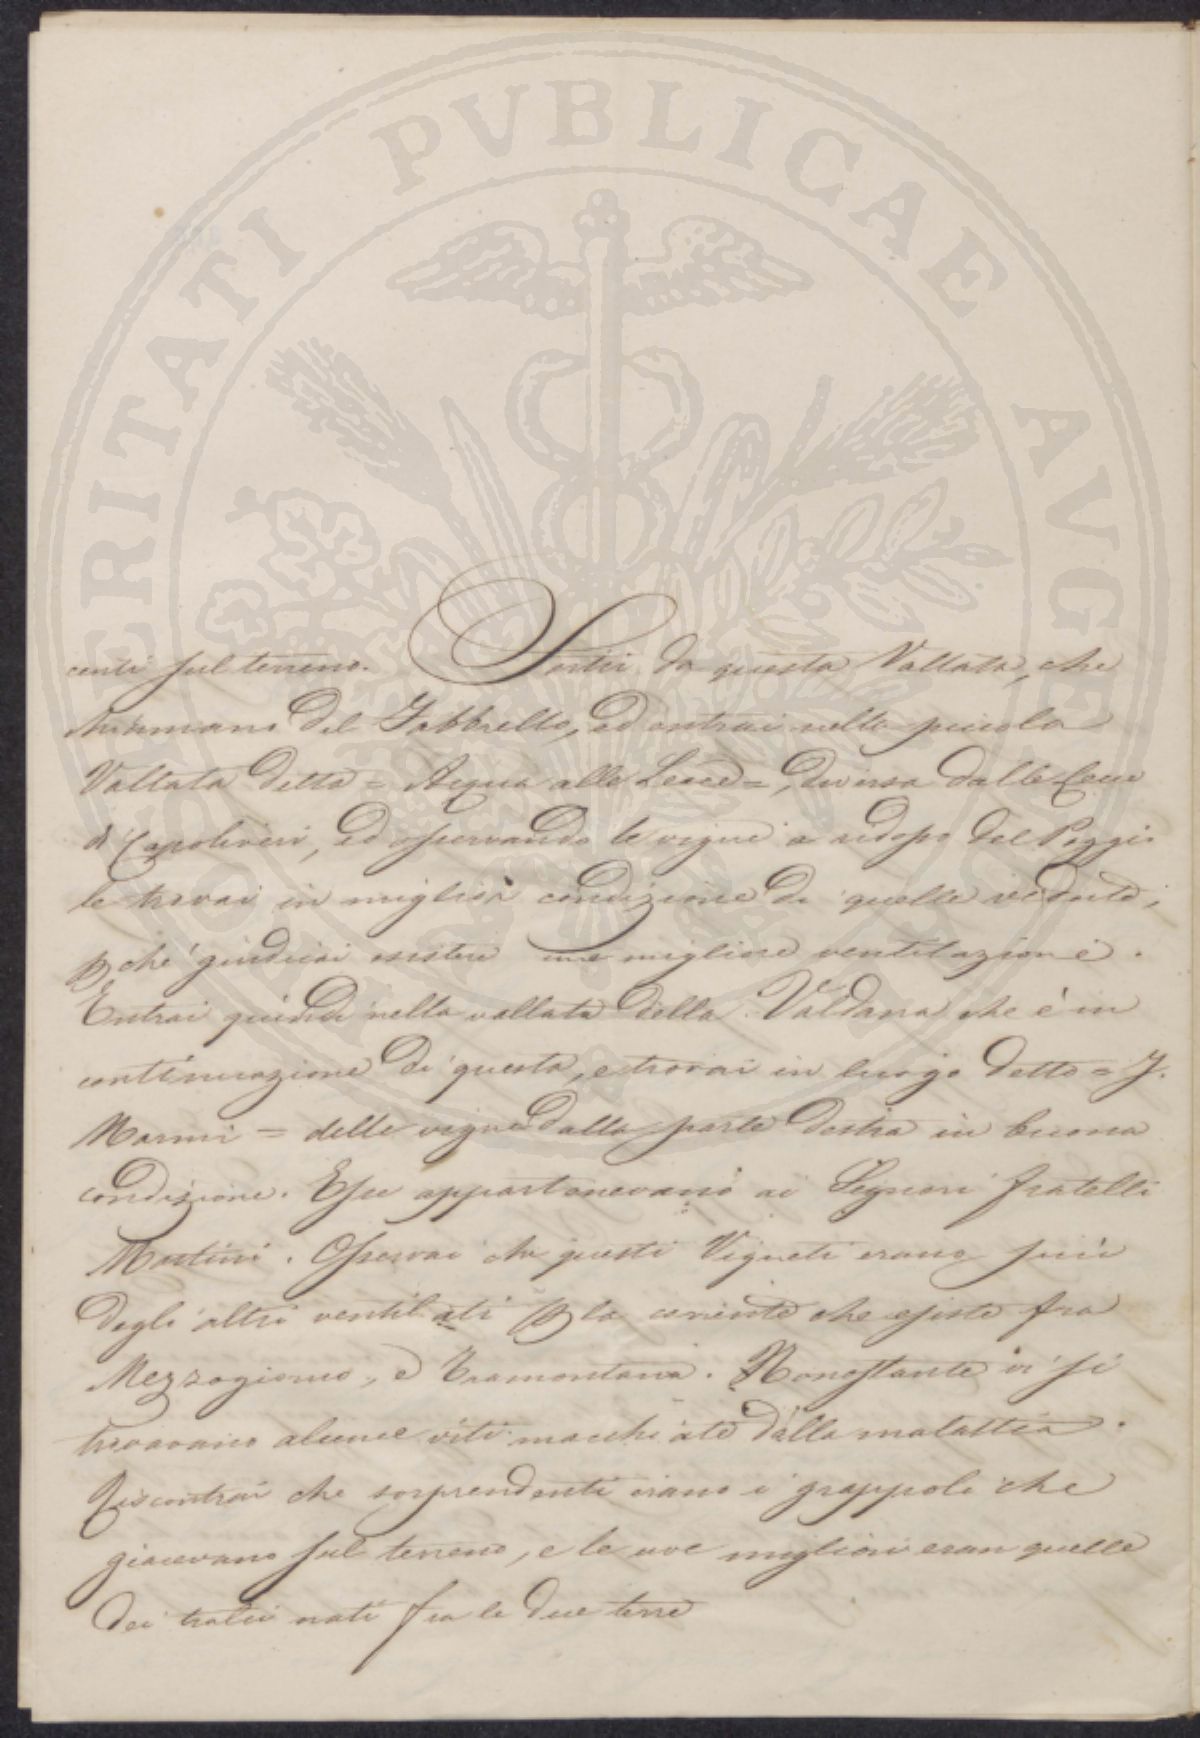 PVBLICAE AVGE
ERITATI
centi sul terreno. Sortii da questa Vallata, che
chiamano del Gobbrello, ed entrai nella piccola
Vallata detta = Acqua alle Leccie =, diversa dalle
di Capoliveri, ed osservando le vigne a ridopo del Poggio
le trovai in miglior condizione di quelle vedute,
pchè giudicai esistere una migliore ventilazione.
Entrai quindi nella vallata della Valdana che è in
continuazione di questa, e trovai in luogo detto = I.
Marmi = delle vigne dalla parte destra in buona
condizione. Esse appartenevano ai Signori fratelli
Martini. Osservai che questi Vigneti erano più
degli altri ventilati p la corrente che esiste fra
Mezzogiorno, e Tramontana. Nonostante vi si
trovavano alcune viti macchiate dalla malattia.
Riscontrai che sorprendenti erano i grappoli che
giacevano sul terreno, e le uve migliori eran quelle
dei tralci nati fra le due terre